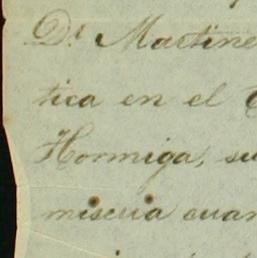 Dr Martine
tica en el
Hormiga, su
miseria cuan